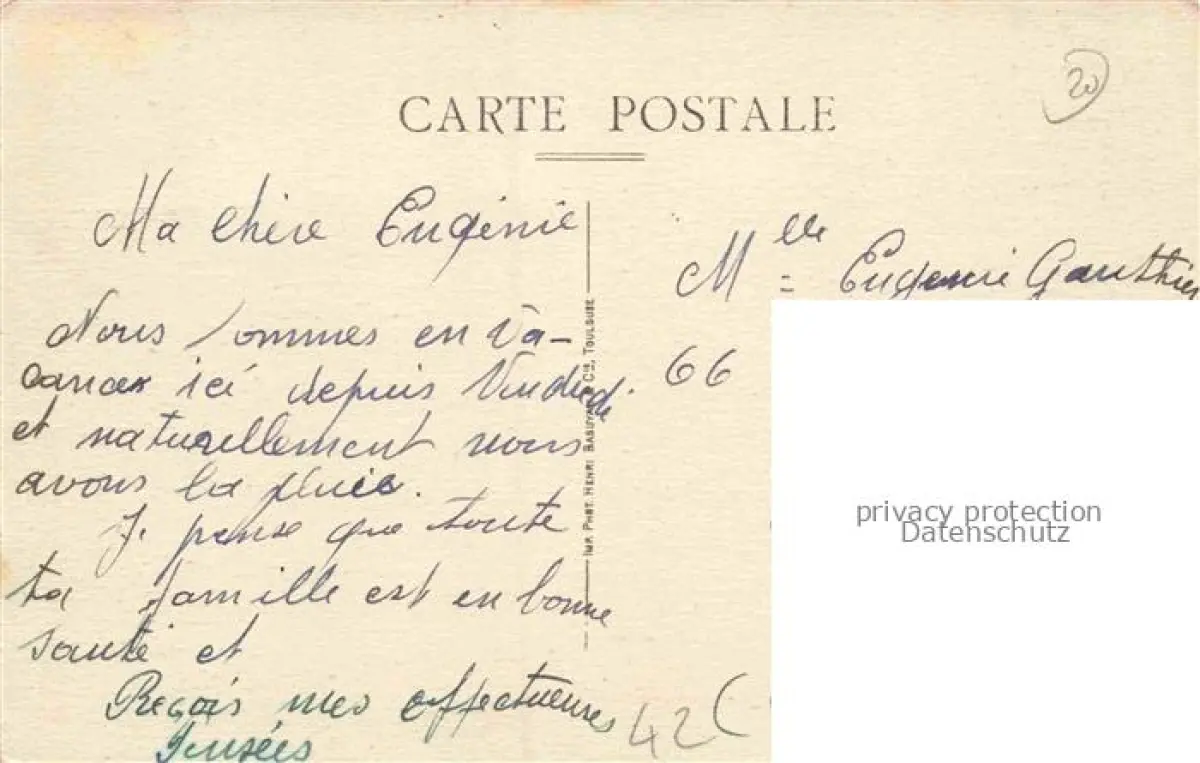 20
CARTE POSTALE
Ma chère Eugénie
Nous sommes en Va-
cances ici depuis Vendredi
et naturellement nous
avons la pluie.
Je pense que toute
ta famille est en bonne
santé et
Reçois mes affectueuses
Pensées
IMP. PHOT. HENRI BASUYAU & CIE, TOULOUSE
Mlle Eugenie Gauthier
66
42 (
privacy protection
Datenschutz